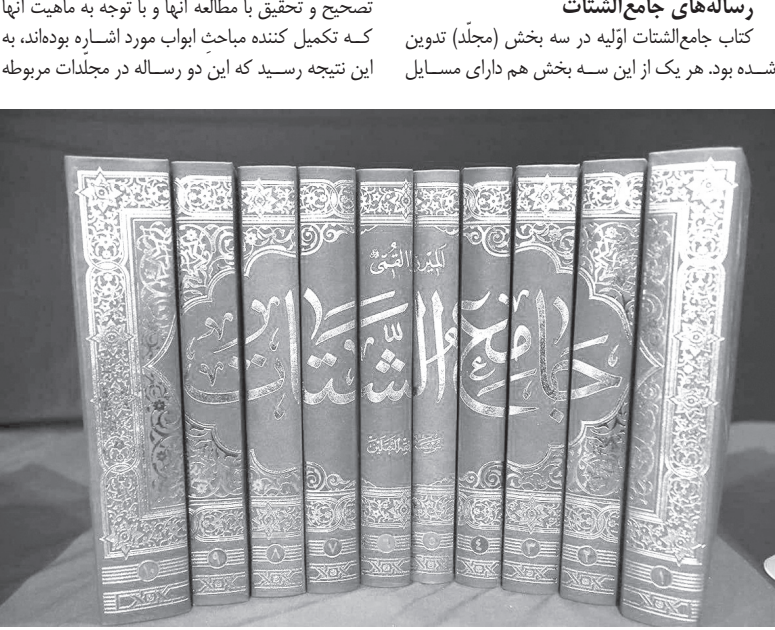 رساله‌های جامع‌الشتات
کتاب جامع‌الشتات اوّلیه در سه بخش (مجلّد) تدوین
شده بود. هر یک از این سه بخش هم دارای مسایل
تصحیح و تحقیق با مطالعه آنها و با توجه به ماهیت آنها
که تکمیل کننده مباحثِ ابواب مورد اشاره بوده‌اند، به
این نتیجه رسید که این دو رساله در مجلّدات مربوطه
المیرزا القمّی
جامع الشّتات
۱
۲
۳
٤
۵
۶
۷
۸
۹
۱۰